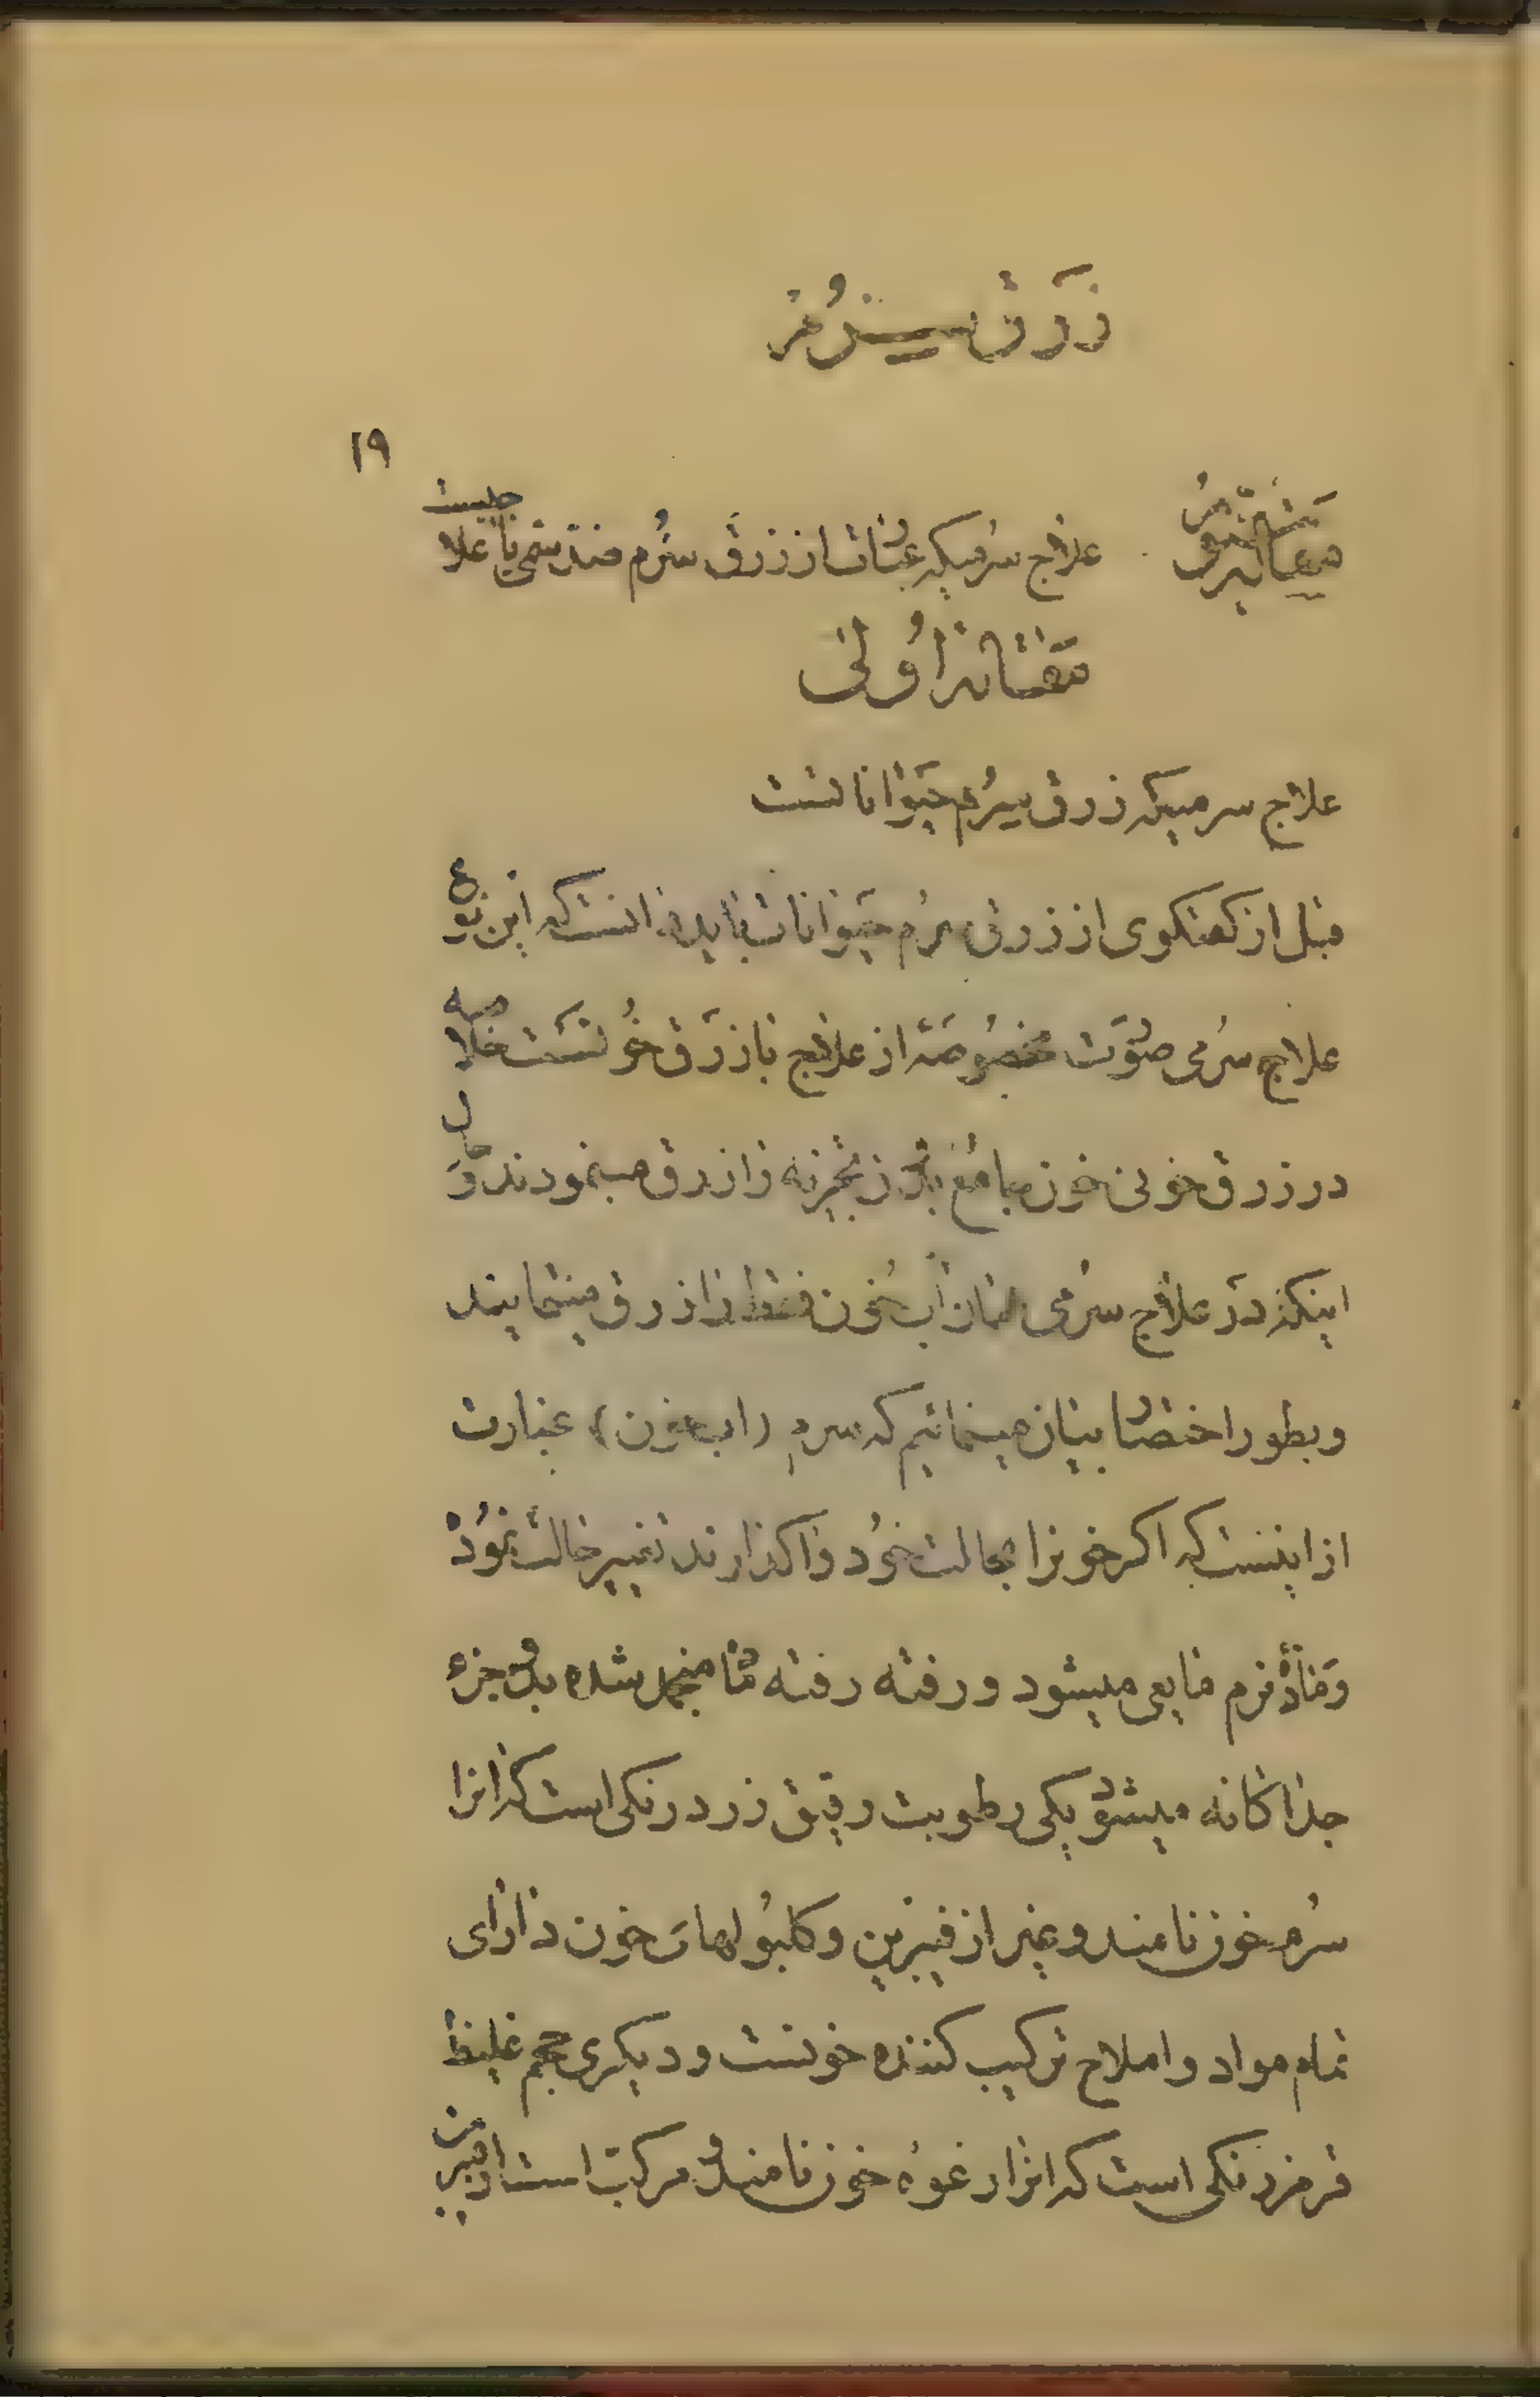 زَرَقِ سِرُم
۱۹
علاج سرمیکه عبارت از زرق سرم ضد سمی یا علا
مقاله اولی
علاج سرمیکه زرق سرم حیوانانست
قبل از کفتکوی از زرق سرم حیوانات باید دانست که این نوع
علاج سرمی صورت مخصوصه از علاج بازرق خونست خلاصه
در زرق خونی خون جامع بدن نجزیه را زرق مینمودند و حال
اینکه در علاج سرمی همان آب خون فقط را زرق مینمایند
وبطور اختصار بیان مینمائیم که سرم (اب خون) عبارت
از اینست که اکر خونرا بحالت خود واکذارند تغییر حالت نموده
ومادهٔ نرم مایعی میشود و رفته رفته تماما منجمد شده بدو جزء
جداکانه میشود یکی رطوبت رقیق زرد رنکی است که انرا
سرم خون نامند و غیر از فیبرین و کلبولهای خون دارای
تمام مواد و املاح ترکیب کننده خونست و دیکری حجم غلیظ
قرمز رنکی است که انرا رغوهٔ خون نامند و مرکب است از فیبرین